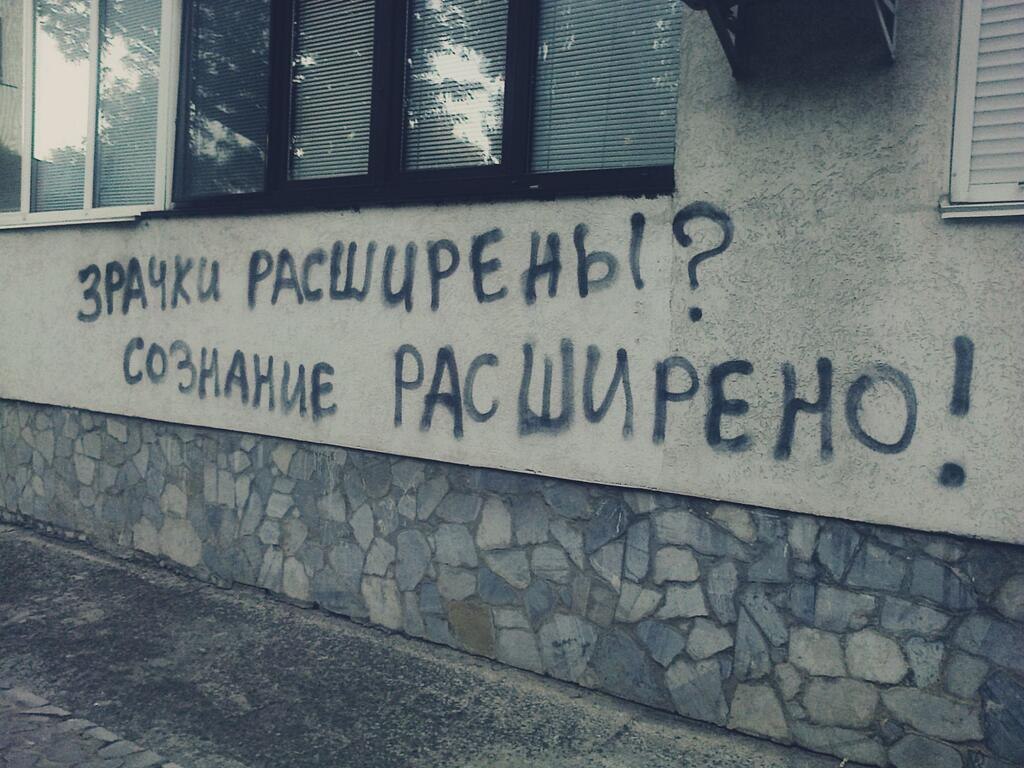 ЗРАЧКИ РАСШИРЕНЫ?
СОЗНАНИЕ РАСШИРЕНО!